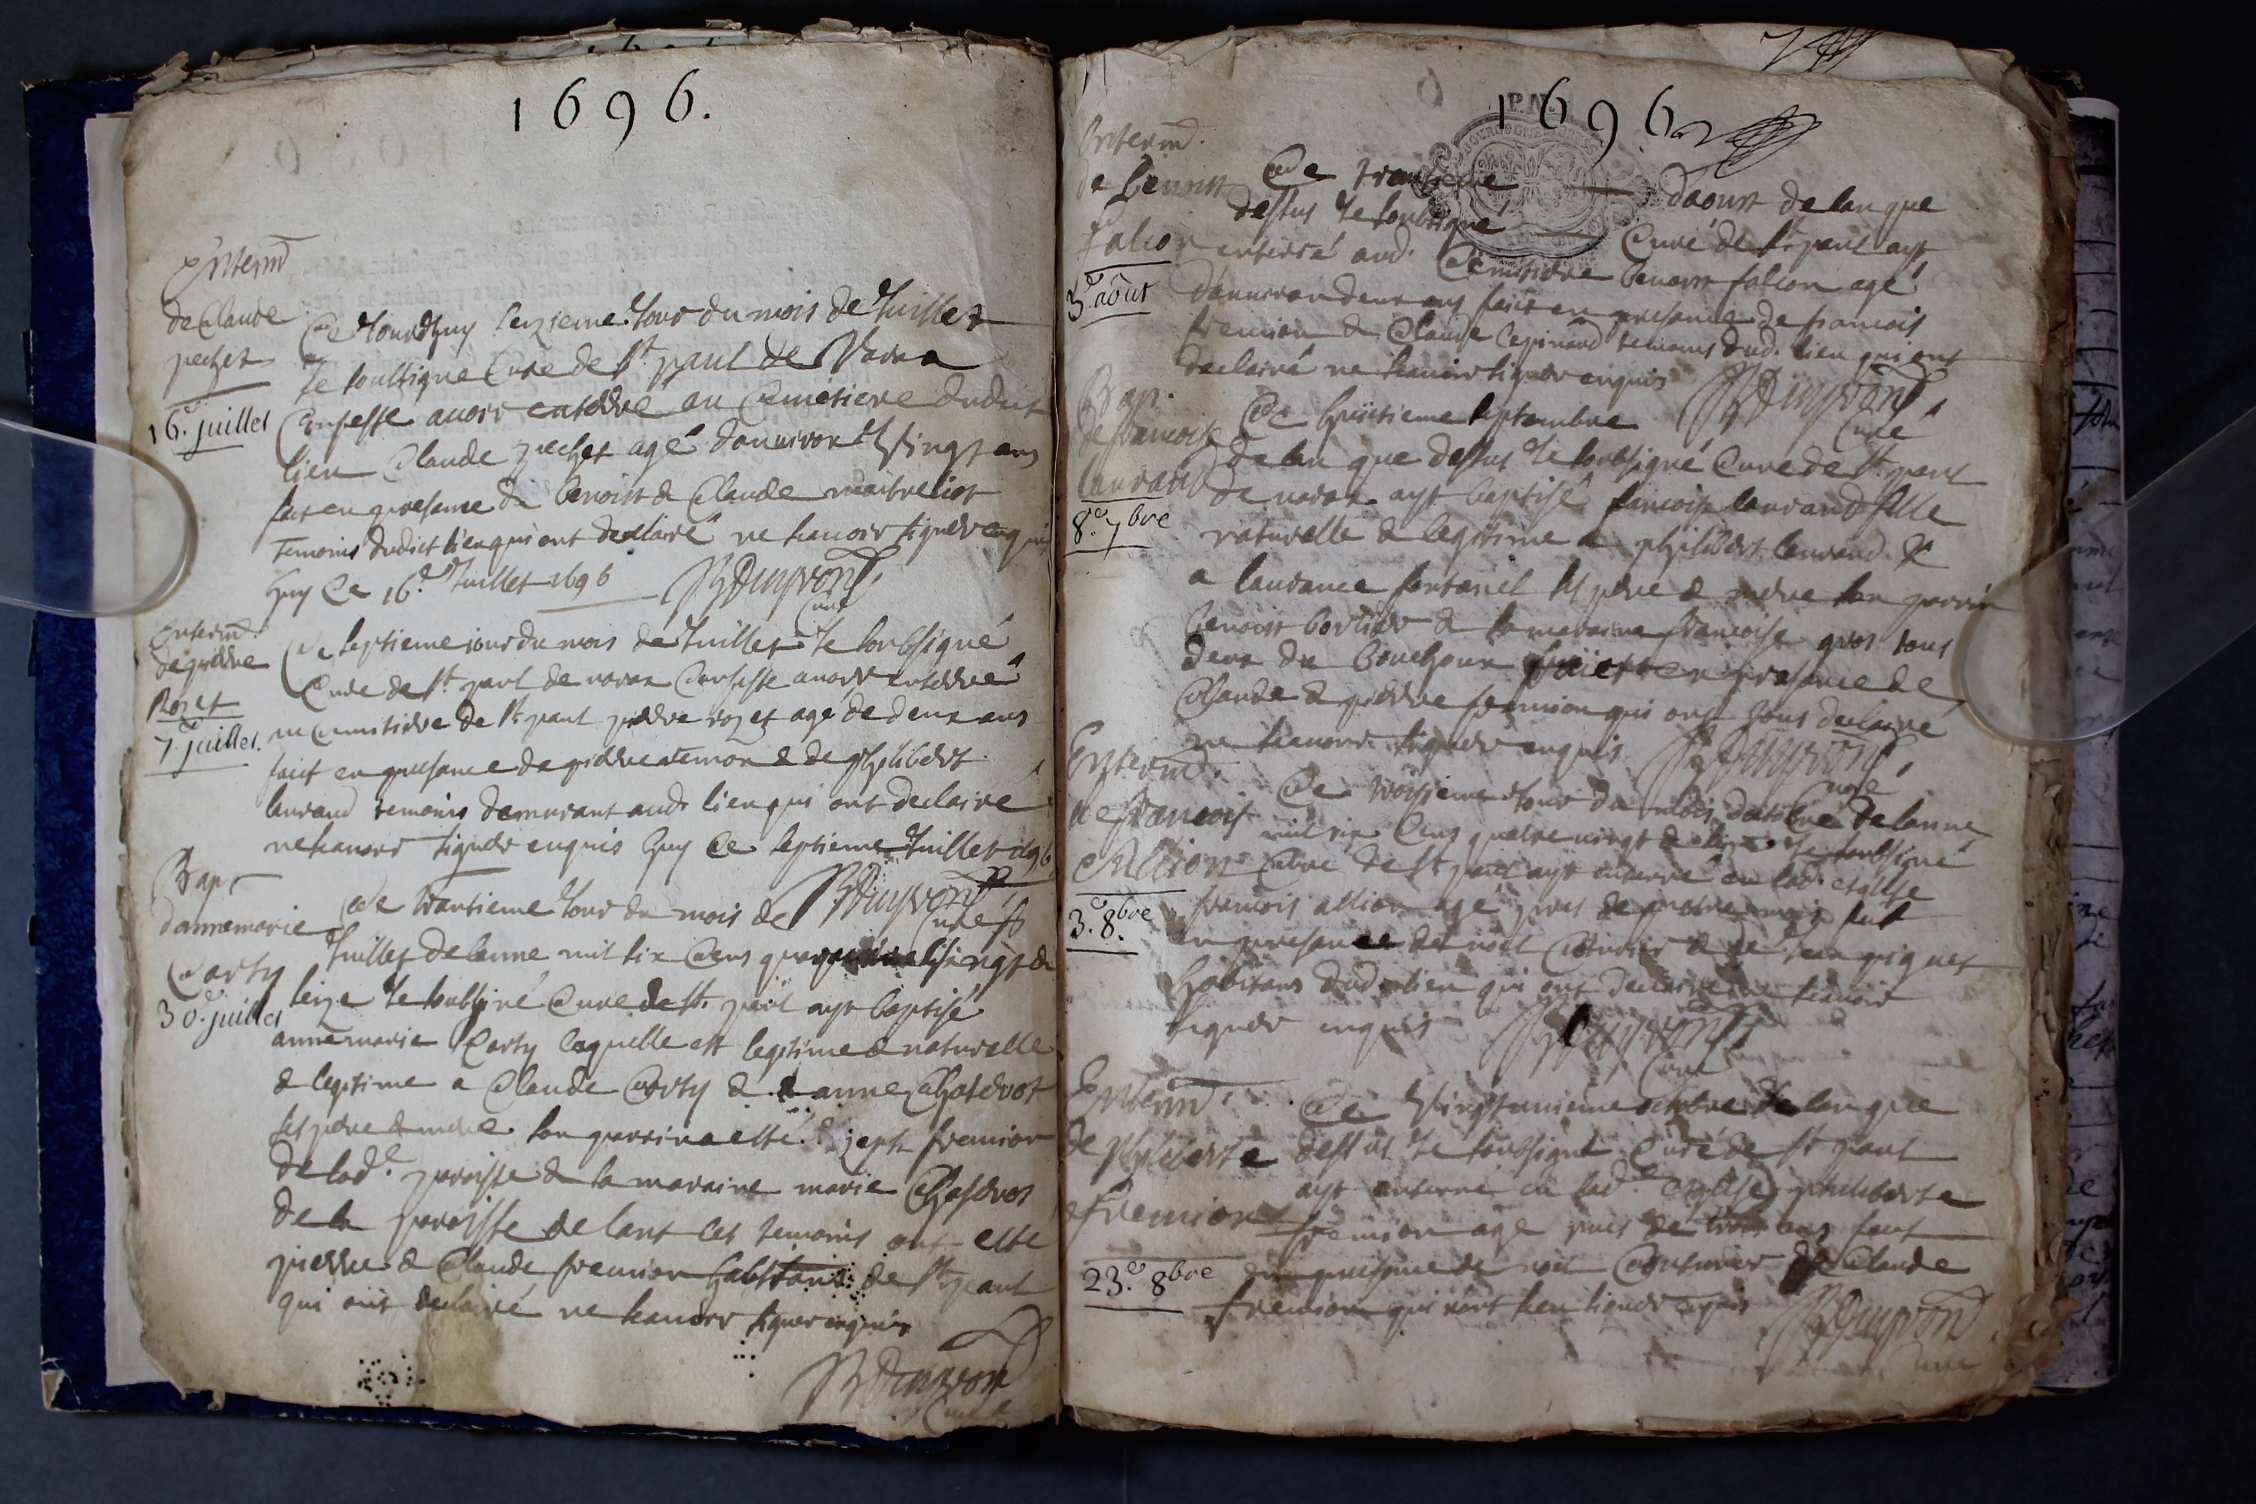 1696.
Enterm̃
de Claude
pechet
16.e juillet
Ce Jourdhuy seizieme Jour du mois de Juillet
Je soubsigne Cure de St. paul de Varax
Confesse avoir enterré au Cemetiere dudict
lieu Claude pechet agé danviron Vingt ans
fait en presance de benoist & Claude
Temoins dudict lieu qui ont declairé ne scavoir signer enquis
huy Ce 16.e Juillet 1696
Curé
Enterm̃.
de pierre
Rozet
7.e juillet.
Ce septieme jour du mois de Juillet Je soubsigné
Cure de St. paul de varax Confesse avoir enterré
au Cemetiere de St. paul pierre rozet agé de deux ans
faict en presance de pierre & de philibert
laurand temoins demeurant aud. lieu qui ont declairé
ne scavoir signer enquis huy Ce septieme Juillet 1696
Curé
Bapt
dannemarie
Carty
30.e juillet
Ce trantieme Jour du mois de
Juillet de lanne mil six Cens quatre Vingt &
seize Je soubsigné Cure de St. paul ayt baptisé
annemarie Carty laquelle est legitime & naturelle
& legitime a Claude Carty & anne Chatdrot
ses pere & mere son parrin a esté Jospt fremion
de lad.e paroisse & la maraine marie
de la paroisse de lant Les temoins ont esté
pierre & Claude fremion habitans de St. paul
qui ont declairé ne scavoir signer enquis
Curé
1696
Enterm̃.
de benoist
falion
3.e aôut
Ce troisieme daoust de lan que
dessus Je soubsigné Curé de St. paul ayt
enterré aud. Cemitiere benoist falion agé
danviron deux ans fait en presance de francois
fremion & Claude Cepinand temoins dud. lieu qui ont
declairé ne scavoir signer enquis
Curé
Bap.
de francoise
laurand
8.e 7bre
Ce huitieme septambre
de lan que dessus Je soubsigné Cure de St. paul
de varax ayt baptisé francoise laurand fille
naturelle & legitime a philibert laurand &
a laurance fontanel ses pere & mere son parrin
benoist bortier & la maraine francoise gros tous
deux du bouchoux faict en presance de
Claude & pierre fremion qui ont tous declairé
ne scavoir signer enquis
Curé
Enterm̃.
de francois
Allion
3.e 8bre.
Ce troisieme Jour du mois doctobre de lanne
mil six Cens quatre vingt & seize Je soubsigné
Cure de St. paul ayt enterré en lad. esglise
francois allion agé pres de quatre mois fait
en presance de noel Couturier & de Jean piquet
habitans dud. lieu qui ont declairé ne scavoir
signer enquis
Curé
Enterm̃.
de philiberte
fremion
23.e 8bre
Ce Vingttroisieme octobre de lan que
dessus Je soubsigné Curé de St. paul
ayt enterré en lad.e esglise philiberte
fremion agé pres de trois ans fait
en presance de noel Couturier & Claude
fremion qui nont sceu signer enquis
Curé